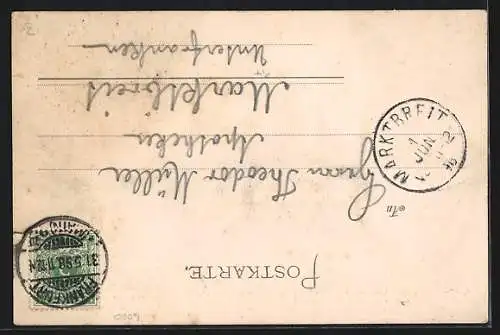 POSTKARTE.
An
Herrn Theodor Müller
Apotheker
Marktbreit
Unterfranken
MARKTBREIT
1
JUN
98
FRANKFURT
31.5.98.11-12N.
(MAIN)